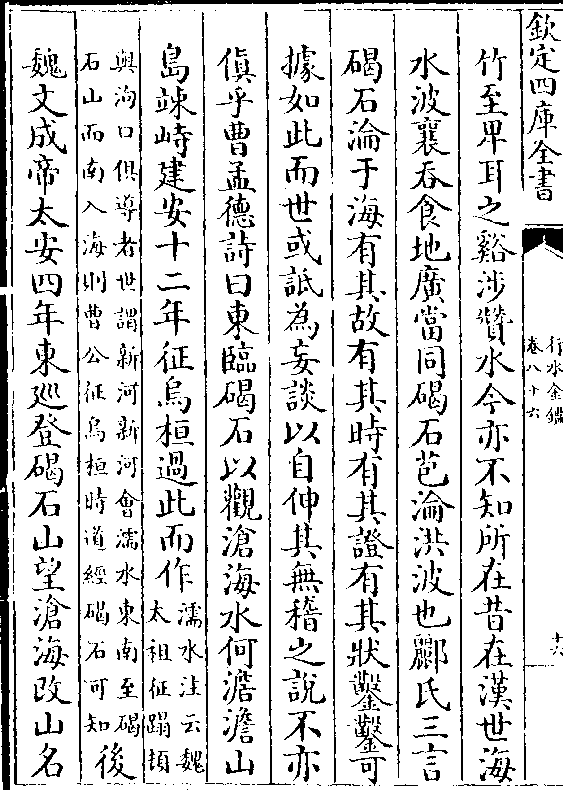 欽定四庫全書
行水金鑑
卷八十六
十六
竹至卑耳之谿涉贊水今亦不知所在昔在漢世海
水波襄吞食地廣當同碣石苞淪洪波也酈氏三言
碣石淪于海有其故有其時有其證有其狀鑿鑿可
據如此而世或詆為妄談以自伸其無稽之說不亦
傎乎曹孟德詩曰東臨碣石以觀滄海水何澹澹山
島竦峙建安十二年征烏桓過此而作濡水注云魏
太祖征蹋頓
與泃口俱導者世謂新河新河會濡水東南至碣
石山而南入海則曹公征烏桓時道經碣石可知後
魏文成帝太安四年東廵登碣石山望滄海改山名